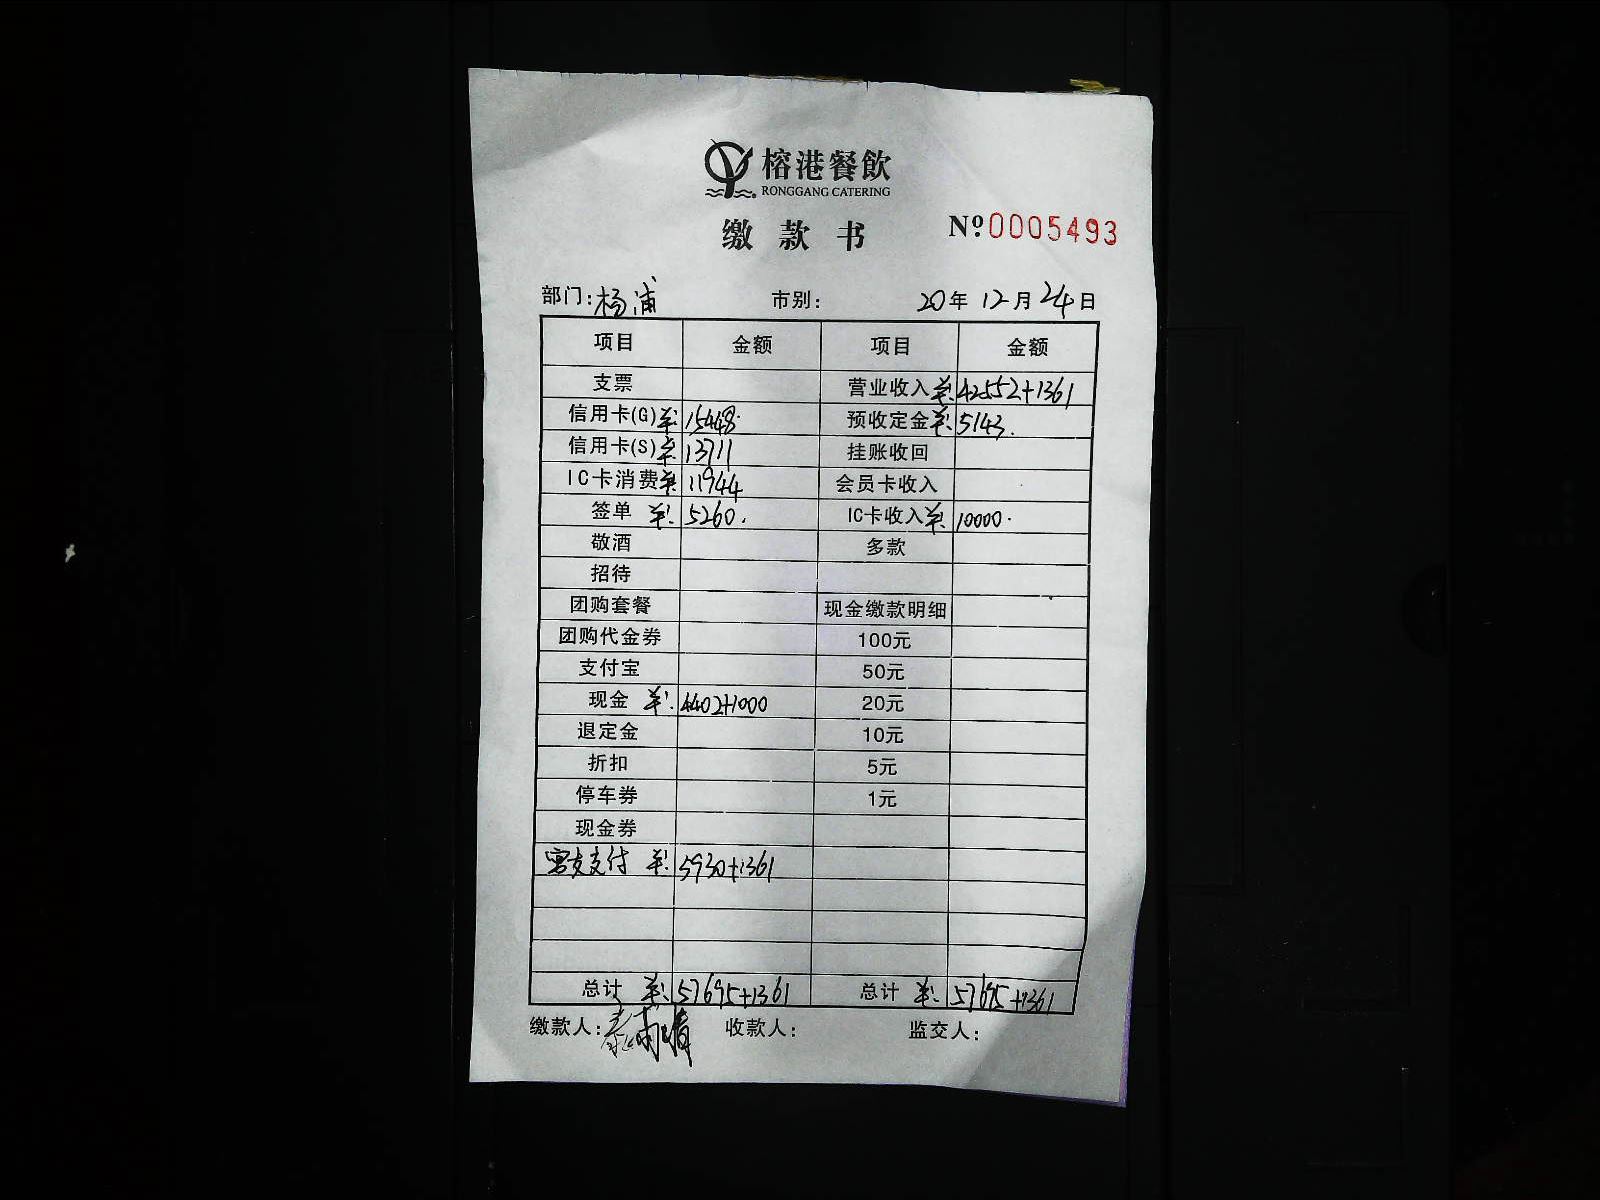 榕港餐飲
RONGGANG CATERING
缴款书 Nº 0005493
部门:杨浦 市别: 20年12月24日
项目 金额 项目 金额
支票 营业收入 ¥:42552+1361
信用卡(G) ¥:15448. 预收定金 ¥:5143.
信用卡(S) ¥:13711 挂账收回
IC卡消费 ¥:11944 会员卡收入
签单 ¥:5260. IC卡收入 ¥:10000.
敬酒 多款
招待
团购套餐 现金缴款明细
团购代金券 100元
支付宝 50元
现金 ¥:4402+1000 20元
退定金 10元
折扣 5元
停车券 1元
现金券
支付 ¥:5930+1361
总计 ¥:57695+1361 总计 ¥:57695+1361
缴款人: 收款人: 监交人: